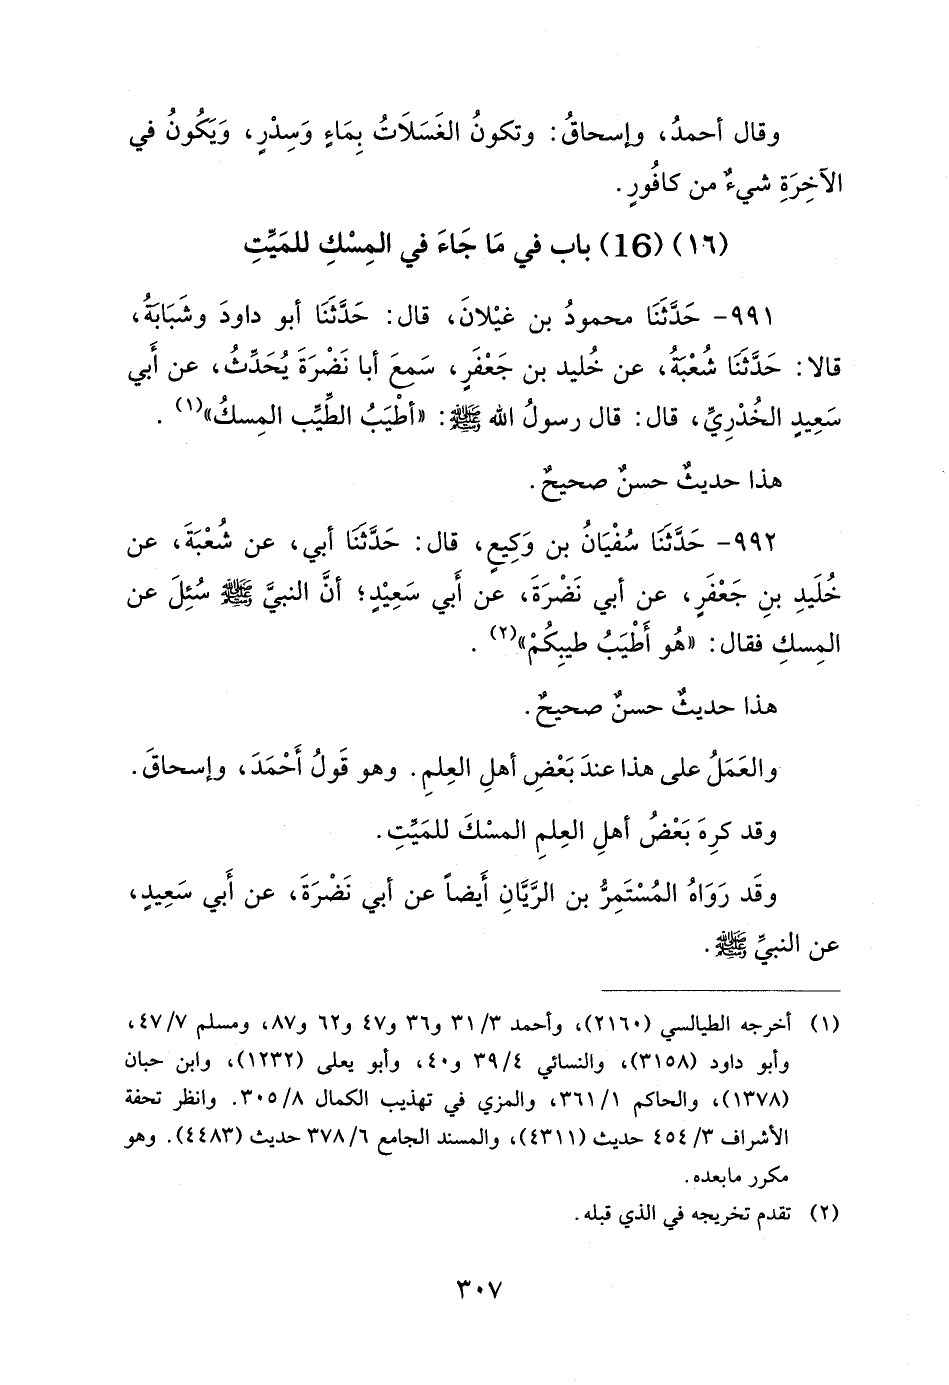 وقال أحمدُ، وإسحاقُ: وتكونُ الغَسَلَاتُ بِمَاءٍ وَسِدْرٍ، وَيَكُونُ في
الآخِرَةِ شيءٌ من كافُورٍ.
(١٦) (16) باب في مَا جَاءَ في المِسْكِ للمَيِّتِ
٩٩١- حَدَّثَنَا محمودُ بن غيْلانَ، قال: حَدَّثَنَا أبو داودَ وشَبَابَةُ،
قالا: حَدَّثَنَا شُعْبَةُ، عن خُليد بن جَعْفَرٍ، سمعَ أبا نضْرَةَ يُحَدِّثُ، عن أَبي
سَعِيدٍ الخُدْرِيِّ، قال: قال رسولُ الله ﷺ: «أطْيَبُ الطِّيِّب المِسكُ»(١).
هذا حديثٌ حسنٌ صحيحٌ.
٩٩٢- حَدَّثَنَا سُفْيَانُ بن وَكِيعٍ، قال: حَدَّثَنَا أبي، عن شُعْبَةَ، عن
خُلَيدِ بنِ جَعْفَرٍ، عن أبي نَضْرَةَ، عن أَبي سَعِيْدٍ؛ أنَّ النبيَّ ﷺ سُئِلَ عن
المِسكِ فقال: «هُو أَطْيَبُ طيبِكُمْ»(٢).
هذا حديثٌ حسنٌ صحيحٌ.
والعَمَلُ على هذا عندَ بَعْضِ أهلِ العِلمِ. وهو قَولُ أَحْمَدَ، وإسحاقَ.
وقد كرِهَ بَعْضُ أهلِ العِلمِ المسْكَ للمَيِّتِ.
وقَد رَوَاهُ المُسْتَمِرُّ بن الرَّيَّانِ أَيضاً عن أبي نَضْرَةَ، عن أَبي سَعِيدٍ،
عن النبيِّ ﷺ.
(١) أخرجه الطيالسي (٢١٦٠)، وأحمد ٣/ ٣١ و٣٦ و٤٧ و٦٢ و٨٧، ومسلم ٤٧/٧،
وأبو داود (٣١٥٨)، والنسائي ٣٩/٤ و٤٠، وأبو يعلى (١٢٣٢)، وابن حبان
(١٣٧٨)، والحاكم ٣٦١/١، والمزي في تهذيب الكمال ٣٠٥/٨. وانظر تحفة
الأشراف ٣/ ٤٥٤ حديث (٤٣١١)، والمسند الجامع ٣٧٨/٦ حديث (٤٤٨٣). وهو
مكرر مابعده.
(٢) تقدم تخريجه في الذي قبله.
٣٠٧